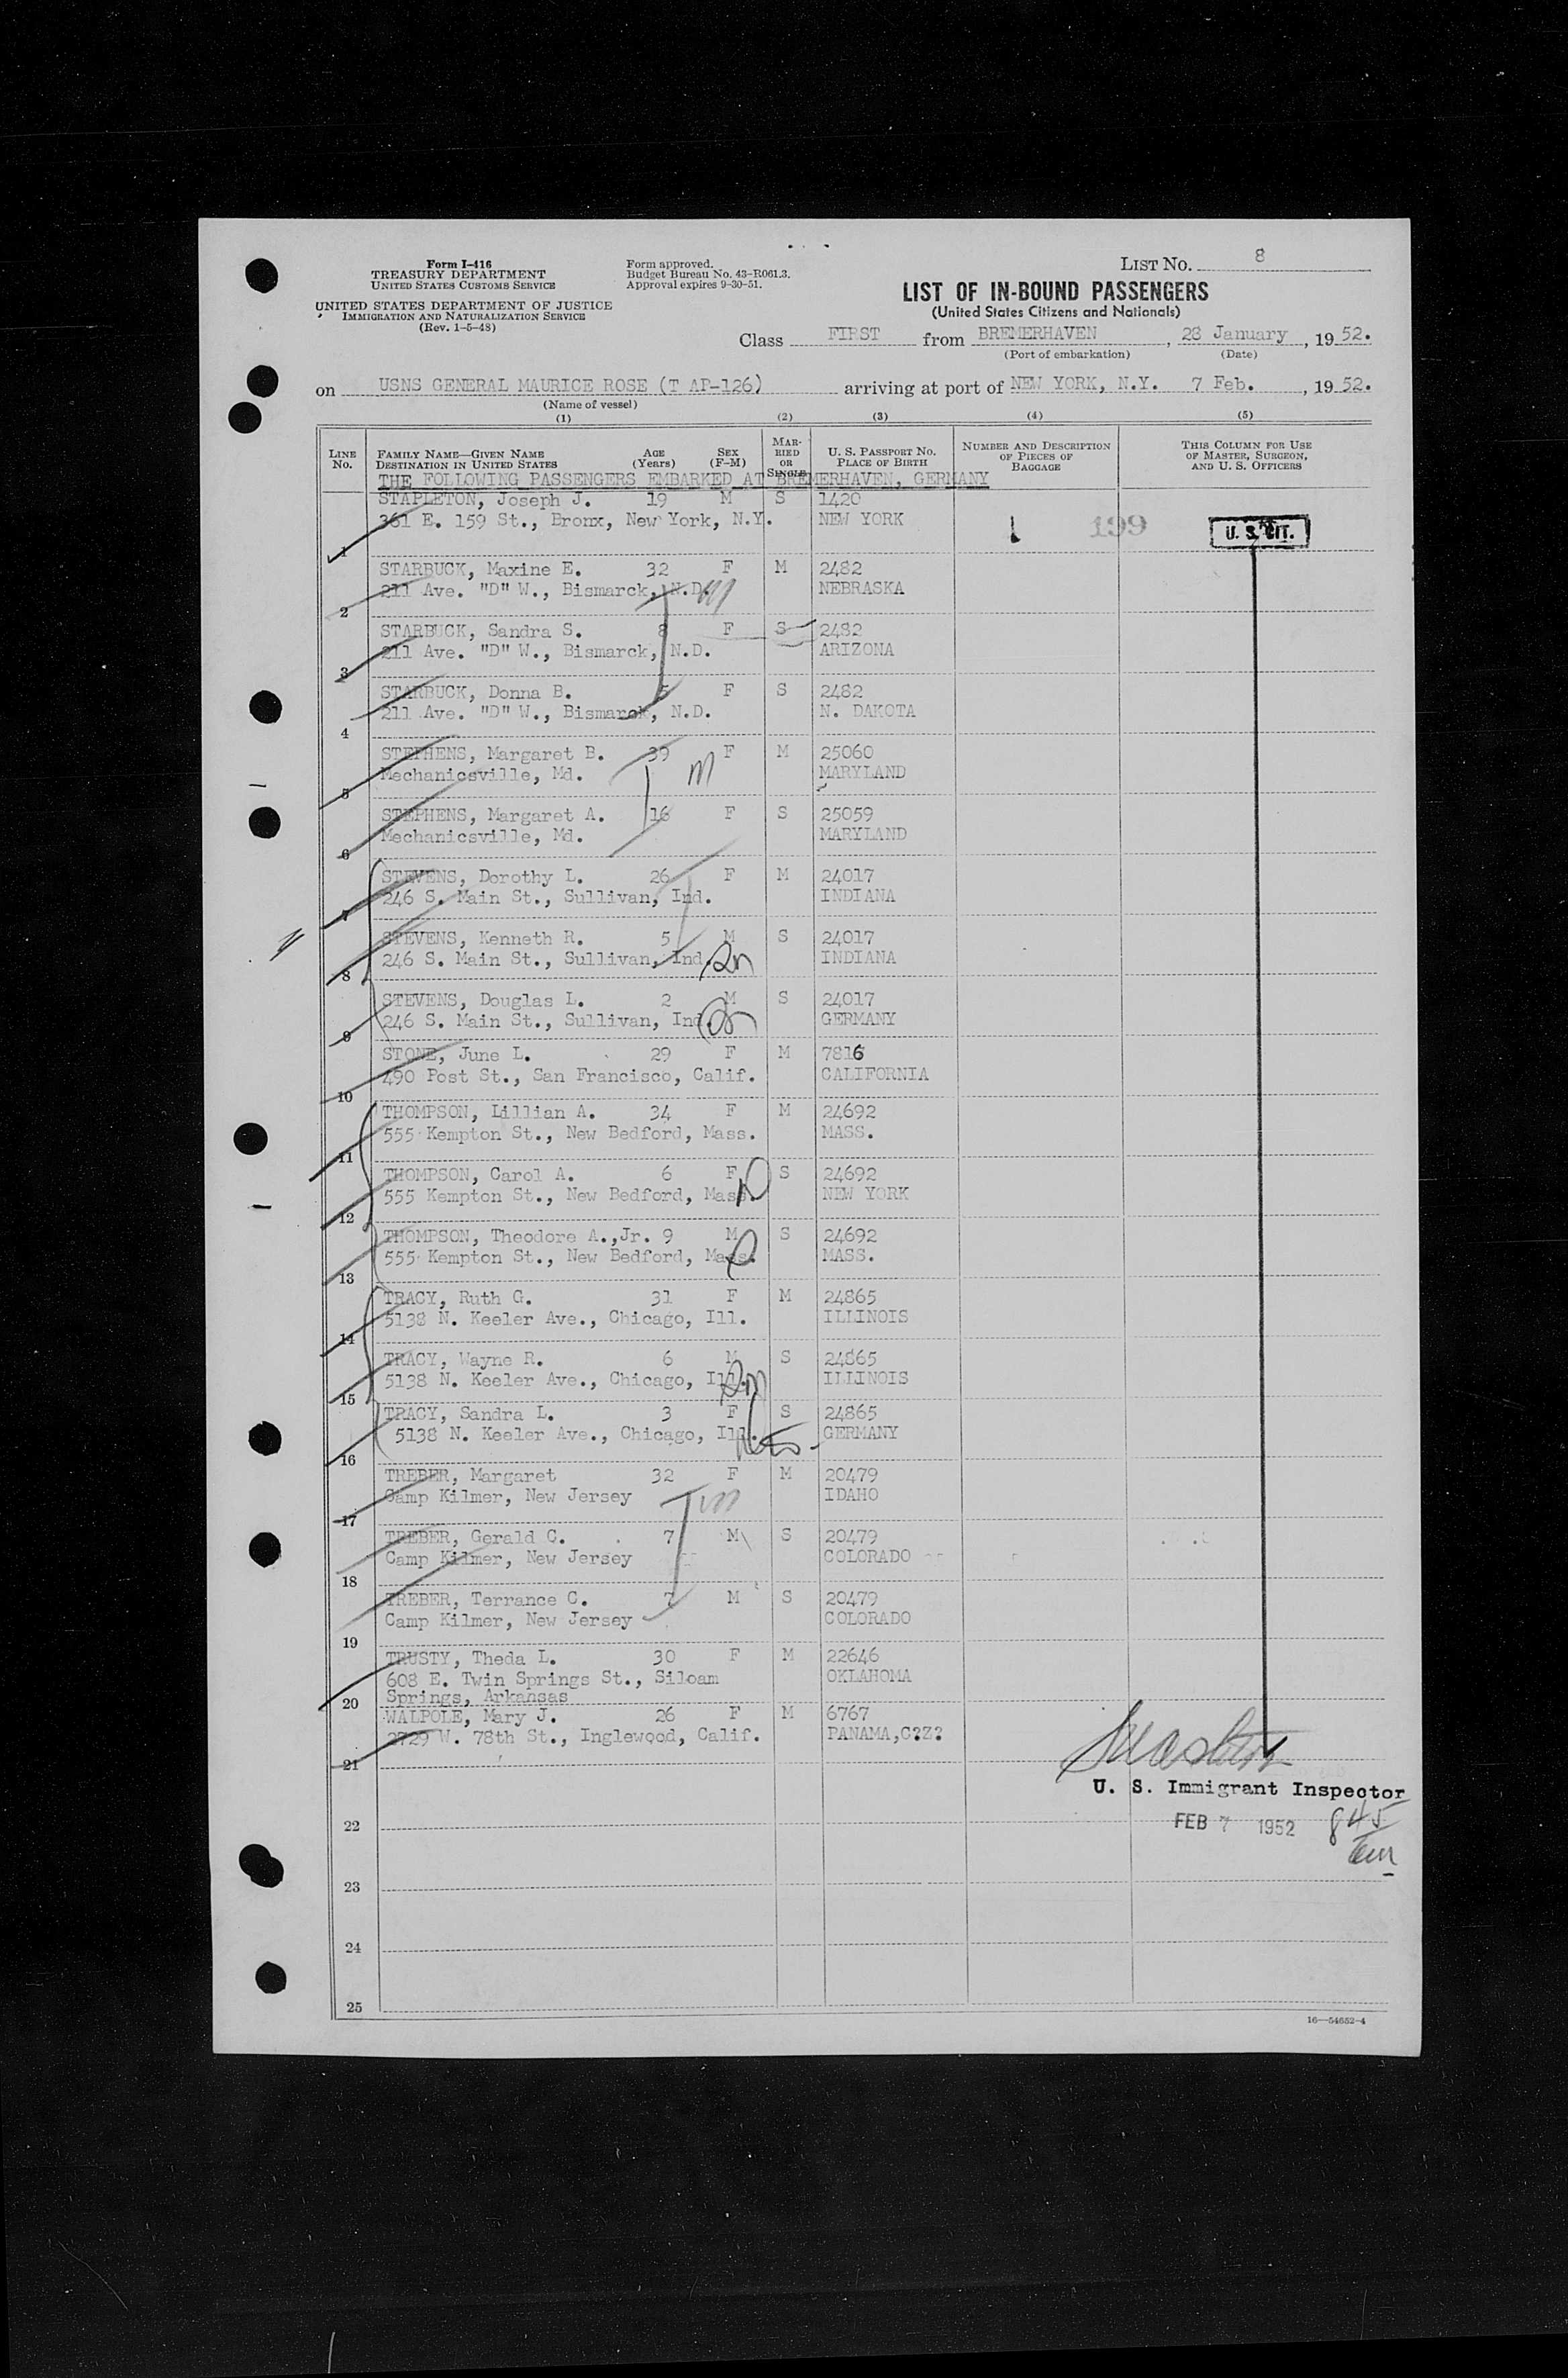 Form I-416
TREASURY DEPARTMENT
UNITED STATES CUSTOMS SERVICE
UNITED STATES DEPARTMENT OF JUSTICE
IMMIGRATION AND NATURALIZATION SERVICE
(Rev. 1-5-48)
Form approved.
Budget Bureau No. 43-R061.3.
Approval expires 9-30-51.
LIST No. 8
LIST OF IN-BOUND PASSENGERS
(United States Citizens and Nationals)
Class FIRST from BREMERHAVEN, 28 January, 19 52.
(Port of embarkation) (Date)
on USNS GENERAL MAURICE ROSE (T AP-126) arriving at port of NEW YORK, N.Y. 7 Feb., 19 52.
(Name of vessel)
(1) (2) (3) (4) (5)
LINE No. FAMILY NAME—GIVEN NAME DESTINATION IN UNITED STATES AGE (Years) SEX (F-M) MARRIED OR SINGLE U. S. PASSPORT No. PLACE OF BIRTH NUMBER AND DESCRIPTION OF PIECES OF BAGGAGE THIS COLUMN FOR USE OF MASTER, SURGEON, AND U. S. OFFICERS
THE FOLLOWING PASSENGERS EMBARKED AT BREMERHAVEN, GERMANY
STAPLETON, Joseph J. 19 M S 1420
361 E. 159 St., Bronx, New York, N.Y. NEW YORK 1 199 U. S. CIT.
1
STARBUCK, Maxine E. 32 F M 2482
211 Ave. "D" W., Bismarck, N.D. M NEBRASKA
2
STARBUCK, Sandra S. 8 F S 2482
211 Ave. "D" W., Bismarck, N.D. ARIZONA
3
STARBUCK, Donna B. 5 F S 2482
211 Ave. "D" W., Bismarck, N.D. N. DAKOTA
4
STEPHENS, Margaret B. 39 F M 25060
Mechanicsville, Md. M MARYLAND
5
STEPHENS, Margaret A. 16 F S 25059
Mechanicsville, Md. MARYLAND
6
STEVENS, Dorothy L. 26 F M 24017
246 S. Main St., Sullivan, Ind. INDIANA
7
STEVENS, Kenneth R. 5 M S 24017
246 S. Main St., Sullivan, Ind. INDIANA
8
STEVENS, Douglas L. 2 M S 24017
246 S. Main St., Sullivan, Ind. GERMANY
9
STONE, June L. 29 F M 7816
490 Post St., San Francisco, Calif. CALIFORNIA
10
THOMPSON, Lillian A. 34 F M 24692
555 Kempton St., New Bedford, Mass. MASS.
11
THOMPSON, Carol A. 6 F S 24692
555 Kempton St., New Bedford, Mass. NEW YORK
12
THOMPSON, Theodore A.,Jr. 9 M S 24692
555 Kempton St., New Bedford, Mass. MASS.
13
TRACY, Ruth G. 31 F M 24865
5138 N. Keeler Ave., Chicago, Ill. ILLINOIS
14
TRACY, Wayne R. 6 M S 24865
5138 N. Keeler Ave., Chicago, Ill. ILLINOIS
15
TRACY, Sandra L. 3 F S 24865
5138 N. Keeler Ave., Chicago, Ill. GERMANY
16
TREBER, Margaret 32 F M 20479
Camp Kilmer, New Jersey IDAHO
17
TREBER, Gerald C. 7 M S 20479
Camp Kilmer, New Jersey COLORADO
18
TREBER, Terrance C. 7 M S 20479
Camp Kilmer, New Jersey COLORADO
19
TRUSTY, Theda L. 30 F M 22646
608 E. Twin Springs St., Siloam OKLAHOMA
20 Springs, Arkansas
WALPOLE, Mary J. 26 F M 6767
2729 W. 78th St., Inglewood, Calif. PANAMA,C?Z?
21
U. S. Immigrant Inspector
22 FEB 7 1952 845
23
24
25
16—54652-4